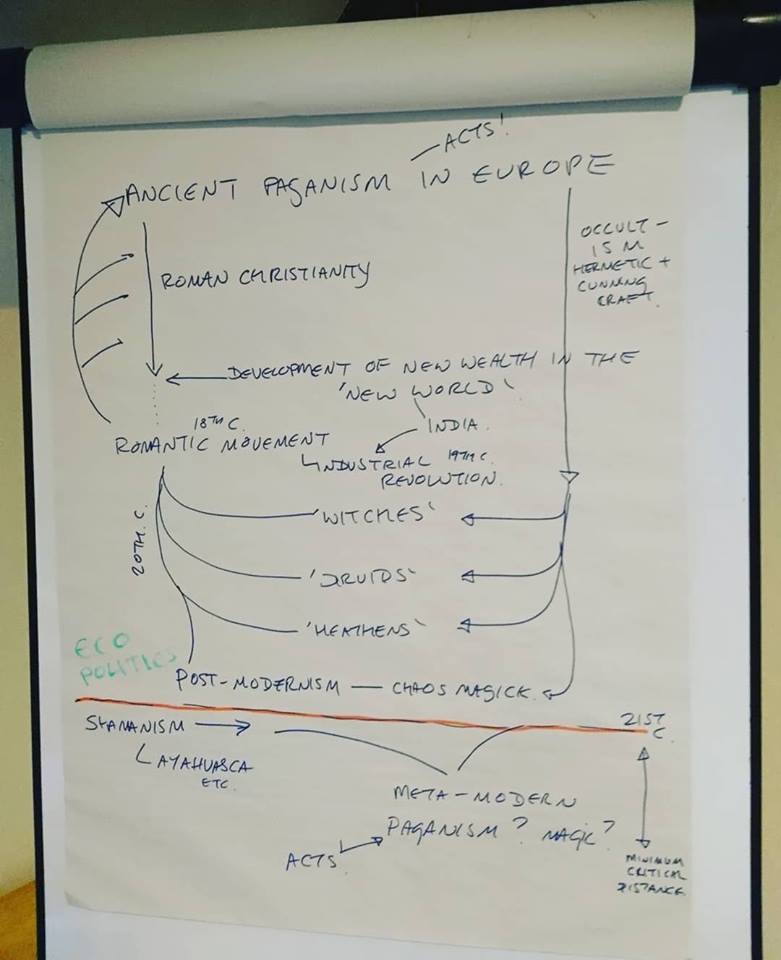 ACTS!
ANCIENT PAGANISM IN EUROPE
OCCULT-
ISM
HERMETIC +
CUNNING
CRAFT.
ROMAN CHRISTIANITY
DEVELOPMENT OF NEW WEALTH IN THE
'NEW WORLD'
INDIA.
18TH C.
ROMANTIC MOVEMENT
INDUSTRIAL 19TH C.
REVOLUTION.
20TH. C.
'WITCHES'
'DRUIDS'
'HEATHENS'
ECO
POLITICS
POST-MODERNISM — CHAOS MAGICK.
21ST
C.
SHAMANISM
AYAHUASCA
ETC.
META-MODERN
PAGANISM? MAGIC?
ACTS
MINIMUM
CRITICAL
DISTANCE